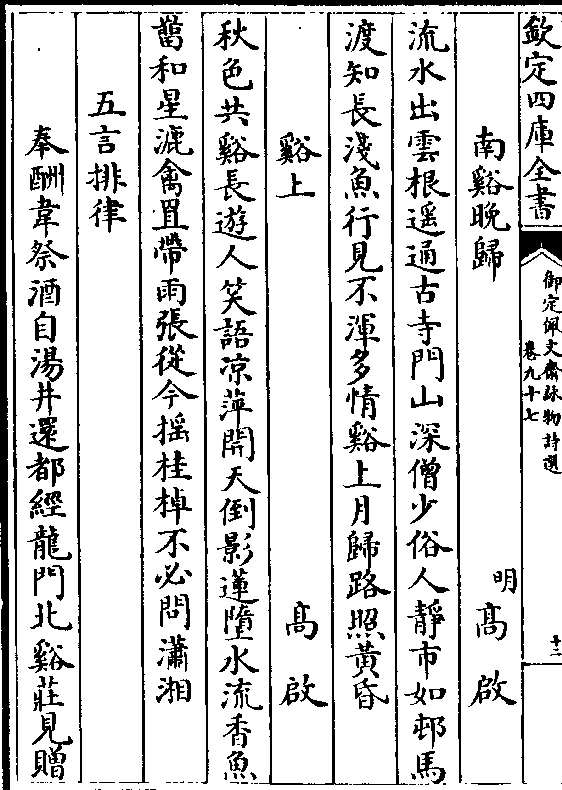 欽定四庫全書
御定佩文齋詠物詩選
卷九十七
十二
南谿晚歸
明高啟
流水出雲根遥通古寺門山深僧少俗人靜市如邨馬
渡知長淺魚行見不渾多情谿上月歸路照黃昏
谿上
高啟
秋色共谿長遊人笑語凉萍開天倒影蓮墮水流香魚
蒚和星漉禽罝帶雨張從今揺桂棹不必問瀟湘
五言排律
奉酬韋祭酒自湯井還都經龍門北谿莊見贈